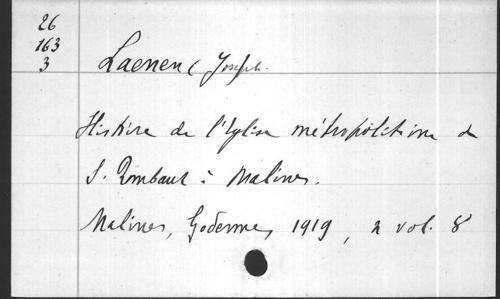 26
163
3
Laenen (Joseph.
Histoire de l'Eglise métropolitaine de
S. Rombaut à Malines.
Malines, Godenne, 1919, 2 vol. 8